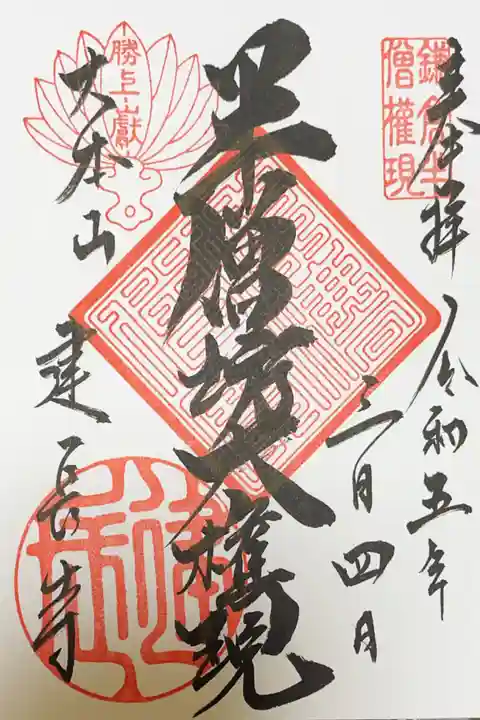 鎌倉半
僧權現
奉拝 令和五年
三月四日
半僧坊大権現
勝上嶽
大本山
建長寺